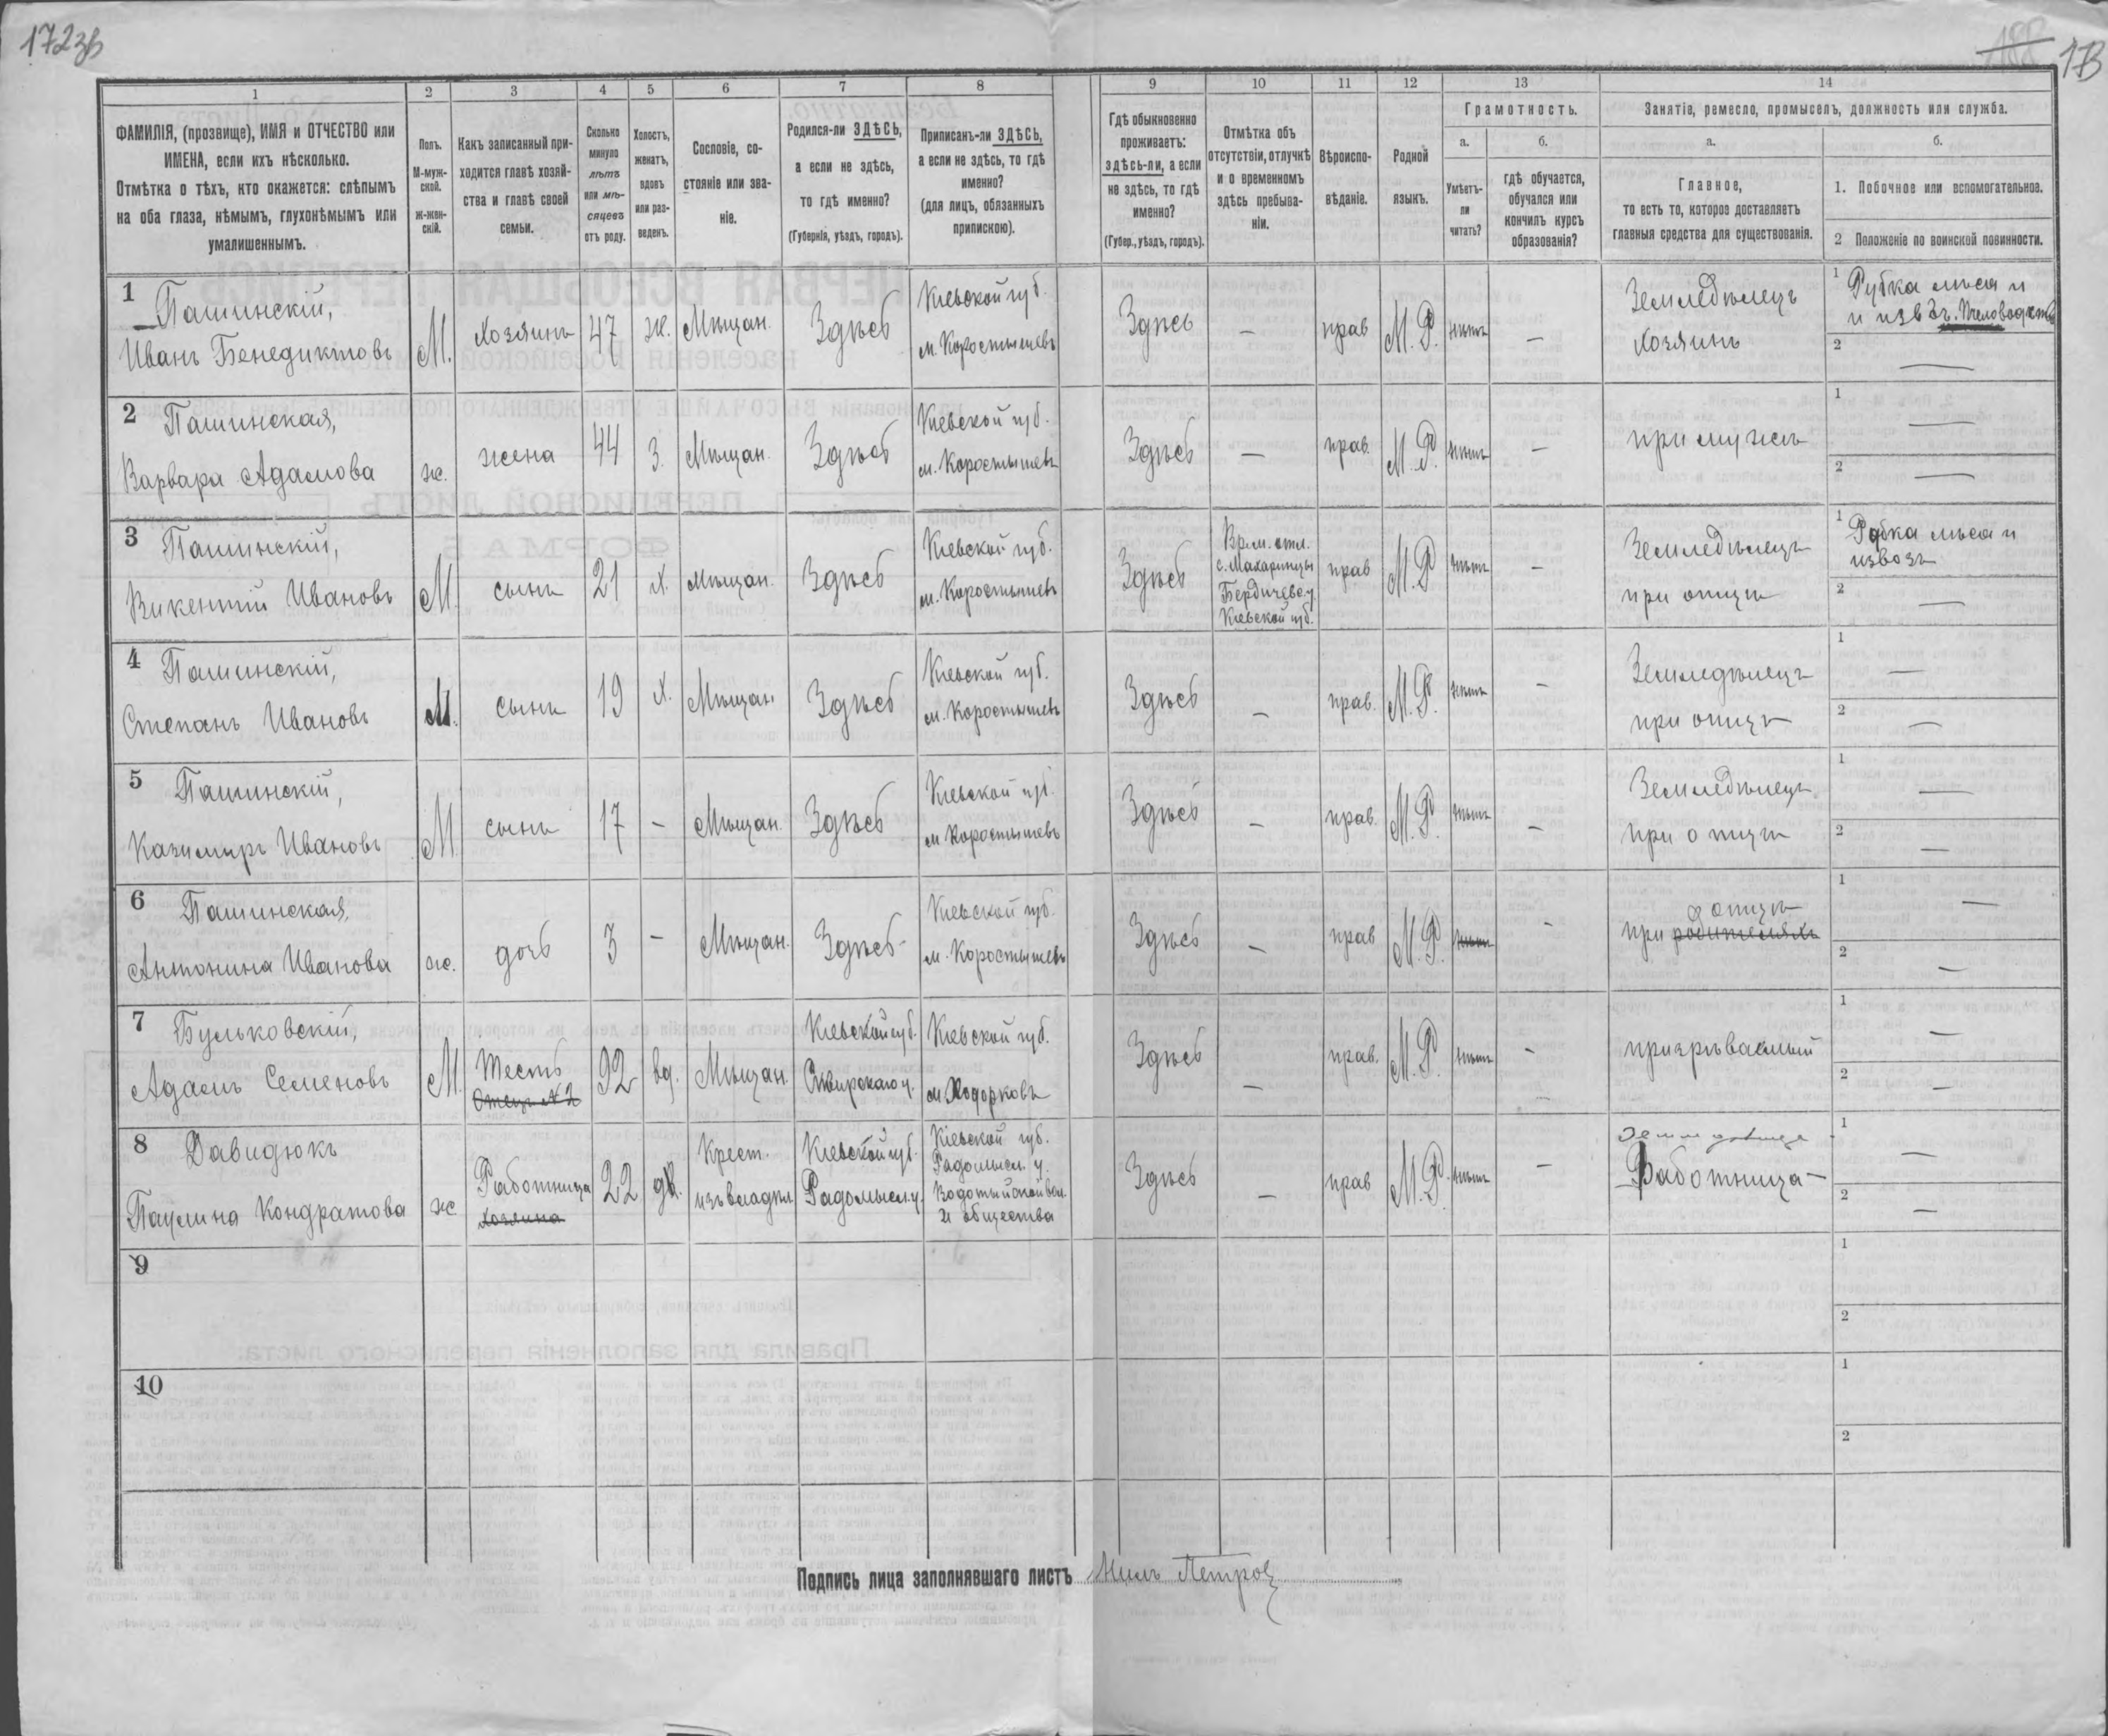 172зв
188 173
1 2 3 4 5 6 7 8 9 10 11 12 13 14
ФАМИЛІЯ, (прозвище), ИМЯ и ОТЧЕСТВО или
ИМЕНА, если ихъ нѣсколько.
Отмѣтка о тѣхъ, кто окажется: слѣпымъ
на оба глаза, нѣмымъ, глухонѣмымъ или
умалишеннымъ.
Полъ.
М-муж-
ской.
Ж-жен-
скій.
Какъ записанный при-
ходится главѣ хозяй-
ства и главѣ своей
семьи.
Сколько
минуло
лѣтъ
или мѣ-
сяцевъ
отъ роду.
Холостъ,
женатъ,
вдовъ
или раз-
веденъ.
Сословіе, со-
стояніе или зва-
ніе.
Родился-ли ЗДѢСЬ,
а если не здѣсь,
то гдѣ именно?
(Губернія, уѣздъ, городъ).
Приписанъ-ли ЗДѢСЬ,
а если не здѣсь, то гдѣ
именно?
(для лицъ, обязанныхъ
припискою).
Гдѣ обыкновенно
проживаетъ:
здѣсь-ли, а если
не здѣсь, то гдѣ
именно?
(Губер., уѣздъ, городъ).
Отмѣтка объ
отсутствіи, отлучкѣ
и о временномъ
здѣсь пребыва-
ніи.
Вѣроиспо-
вѣданіе.
Родной
языкъ.
Грамотность.
а.
Умѣетъ-
ли
читать?
б.
гдѣ обучается,
обучался или
кончилъ курсъ
образованія?
Занятіе, ремесло, промыселъ, должность или служба.
а.
Главное,
то есть то, которое доставляетъ
главныя средства для существованія.
б.
1. Побочное или вспомогательное.
2 Положеніе по воинской повинности.
1 Пашинскій,
Иванъ Бенедиктовъ
М. Хозяинъ 47 ж. Мѣщан. Здѣсь
Кіевской губ.
м. Коростышевъ
Здѣсь — прав М. Р. нѣтъ —
Земледѣлецъ
Хозяинъ
1 Рубка мяса и
Пчеловодств
2 —
2 Пашинская,
Варвара Адамова
ж. жена 44 З. Мѣщан. Здѣсь
Кіевской губ.
м. Коростышевъ
Здѣсь — прав. М. Р. нѣтъ —
при мужѣ
1 —
2 —
3 Пашинскій,
Викентій Ивановъ
М. сынъ 21 Х. мѣщан. Здѣсь
Кіевской губ.
м. Коростышевъ
Здѣсь
Врем. отл.
с. Махаринцы
Бердичев. у
Кіевской губ.
прав М. Р нѣтъ —
Земледѣлецъ
при отцѣ
1 Рубка мяса и
извозъ
2 —
4 Пашинскій,
Степанъ Ивановъ
М. сынъ 19 Х. Мѣщан Здѣсь
Кіевской губ.
м. Коростышевъ
Здѣсь — прав. М. Р. нѣтъ —
Земледѣлецъ
при отцѣ
1 —
2 —
5 Пашинскій,
Казимиръ Ивановъ
М сынъ 17 — Мѣщан. Здѣсь
Кіевской губ.
м Коростышевъ
Здѣсь — прав. М. Р. нѣтъ —
Земледѣлецъ
при отцѣ
1 —
2 —
6 Пашинская,
Антонина Иванова
ж. дочь 3 — Мѣщан. Здѣсь
Кіевской губ.
м. Коростышевъ
Здѣсь — прав М. Р. нѣтъ —
отцѣ
при родителяхъ
1 —
2 —
7 Бульковскій,
Адамъ Семеновъ
М. Тесть
Отецъ №2
92 вд. Мѣщан.
Кіевской губ.
Сквирскаго у.
Кіевской губ.
м. Ходорковъ
Здѣсь — прав. М. Р. нѣтъ —
призрѣваемый
1 —
2 —
8 Давидюкъ
Паулина Кондратова
ж Работница
Хозяина
22 дѣв.
Крест.
изъ владѣл.
Кіевской губ.
Радомысл. у.
Кіевской губ.
Радомысл. у.
Водотыйской вол.
и общества
Здѣсь — прав М. Р. нѣтъ —
Работница —
1 —
2 —
9
1
2
10
1
2
Подпись лица заполнявшаго листъ Нилъ Петров